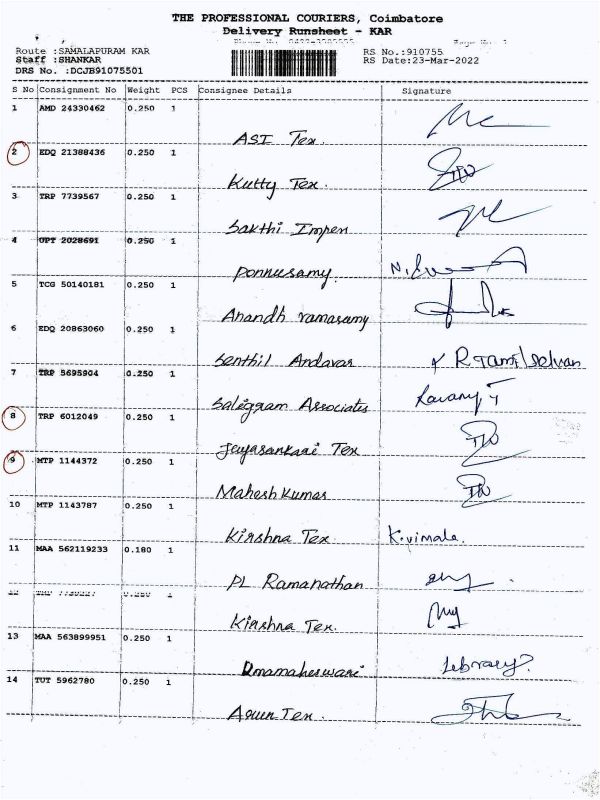 THE PROFESSIONAL COURIERS, Coimbatore
Delivery Runsheet - KAR
Route :SAMALAPURAM KAR RS No.:910755
Staff :SHANKAR RS Date:23-Mar-2022
DRS No. :DCJB91075501
S No Consignment No Weight PCS Consignee Details Signature
1 AMD 24330462 0.250 1
ASI Tex.
2 EDQ 21388436 0.250 1
Kutty Tex.
3 TRP 7739567 0.250 1
Sakthi Impex
4 UPT 2028691 0.250 1
Ponnusamy.
5 TCG 50140181 0.250 1
Anandh ramasamy
6 EDQ 20863060 0.250 1
Senthil Andavar R Tamilselvan
7 TRP 5695904 0.250 1
Salegram Associates
8 TRP 6012049 0.250 1
Jeyasankari Tex
9 MTP 1144372 0.250 1
Mahesh Kumar
10 MTP 1143787 0.250 1
Kirshna Tex. K.vimala.
11 MAA 562119233 0.180 1
PL Ramanathan
Kirshna Tex.
13 MAA 563899951 0.250 1
Umamaheswari
14 TUT 5962780 0.250 1
Arun Tex.